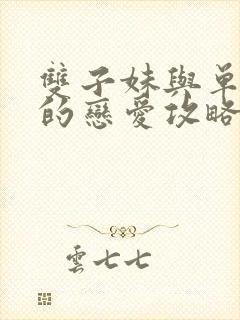 雙子妹與單
的戀愛攻略
雲七七